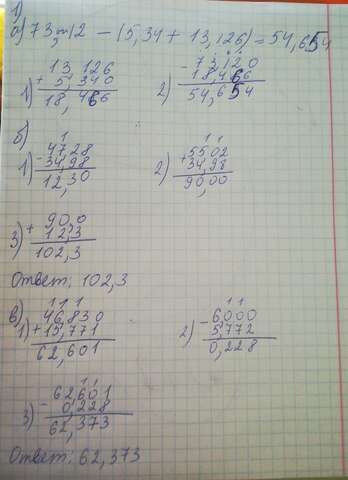 1)
а) 73,12 – (5,34 + 13,126) = 54,654
1) 13,126
+ 5,340
18,466
2) - 73,120
18,466
54,654
б)
1) 47,28
- 34,98
12,30
2) + 5502
34,98
90,00
3) + 90,0
12,3
102,3
Ответ: 102,3
в)
1 1 1
1) 46,830
+ 15,771
62,601
1 1
2) - 6,000
5,772
0,228
3) - 62,601
0,228
62,373
Ответ: 62,373